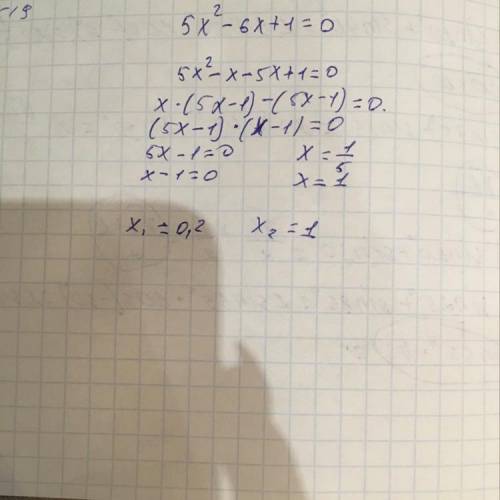 -19
5x² - 6x + 1 = 0
5x² - x - 5x + 1 = 0
x · (5x - 1) - (5x - 1) = 0.
(5x - 1) · (x - 1) = 0
5x - 1 = 0 x = 1/5
x - 1 = 0 x = 1
x₁ = 0,2 x₂ = 1